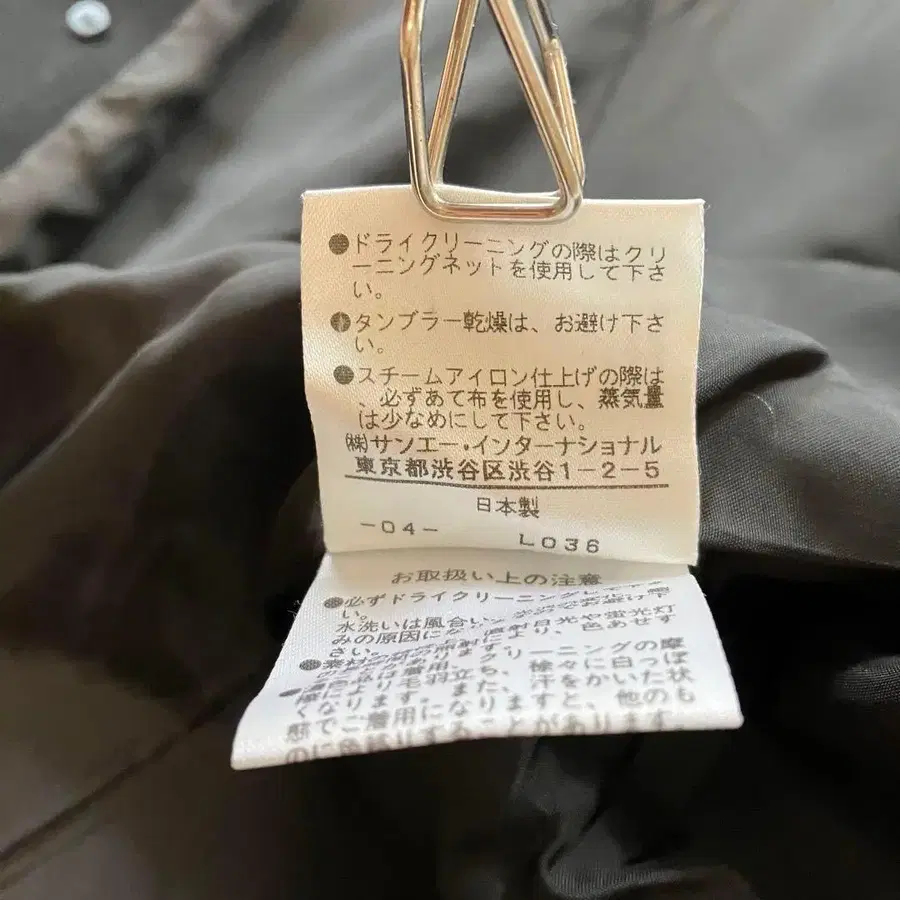 ●ドライクリーニングの際はクリ
ーニングネットを使用して下さ
い。
●タンブラー乾燥は、お避け下さ
い。
●スチームアイロン仕上げの際は
、必ずあて布を使用し、蒸気量
は少なめにして下さい。
㈱サンエー・インターナショナル
東京都渋谷区渋谷1-2-5
日本製
-04- L036
お取扱い上の注意
●必ずドライクリーニングして
い。
水洗いは風合い、
みの原因に
直射日光や蛍光灯
さい。
により、色あせす
ります。
●濃色品は着用、クリーニングの摩
擦により毛羽立ち、徐々に白っぽ
くなります。また、汗をかいた状
態でご着用になりますと、他のも
のに色移りすることがあります。